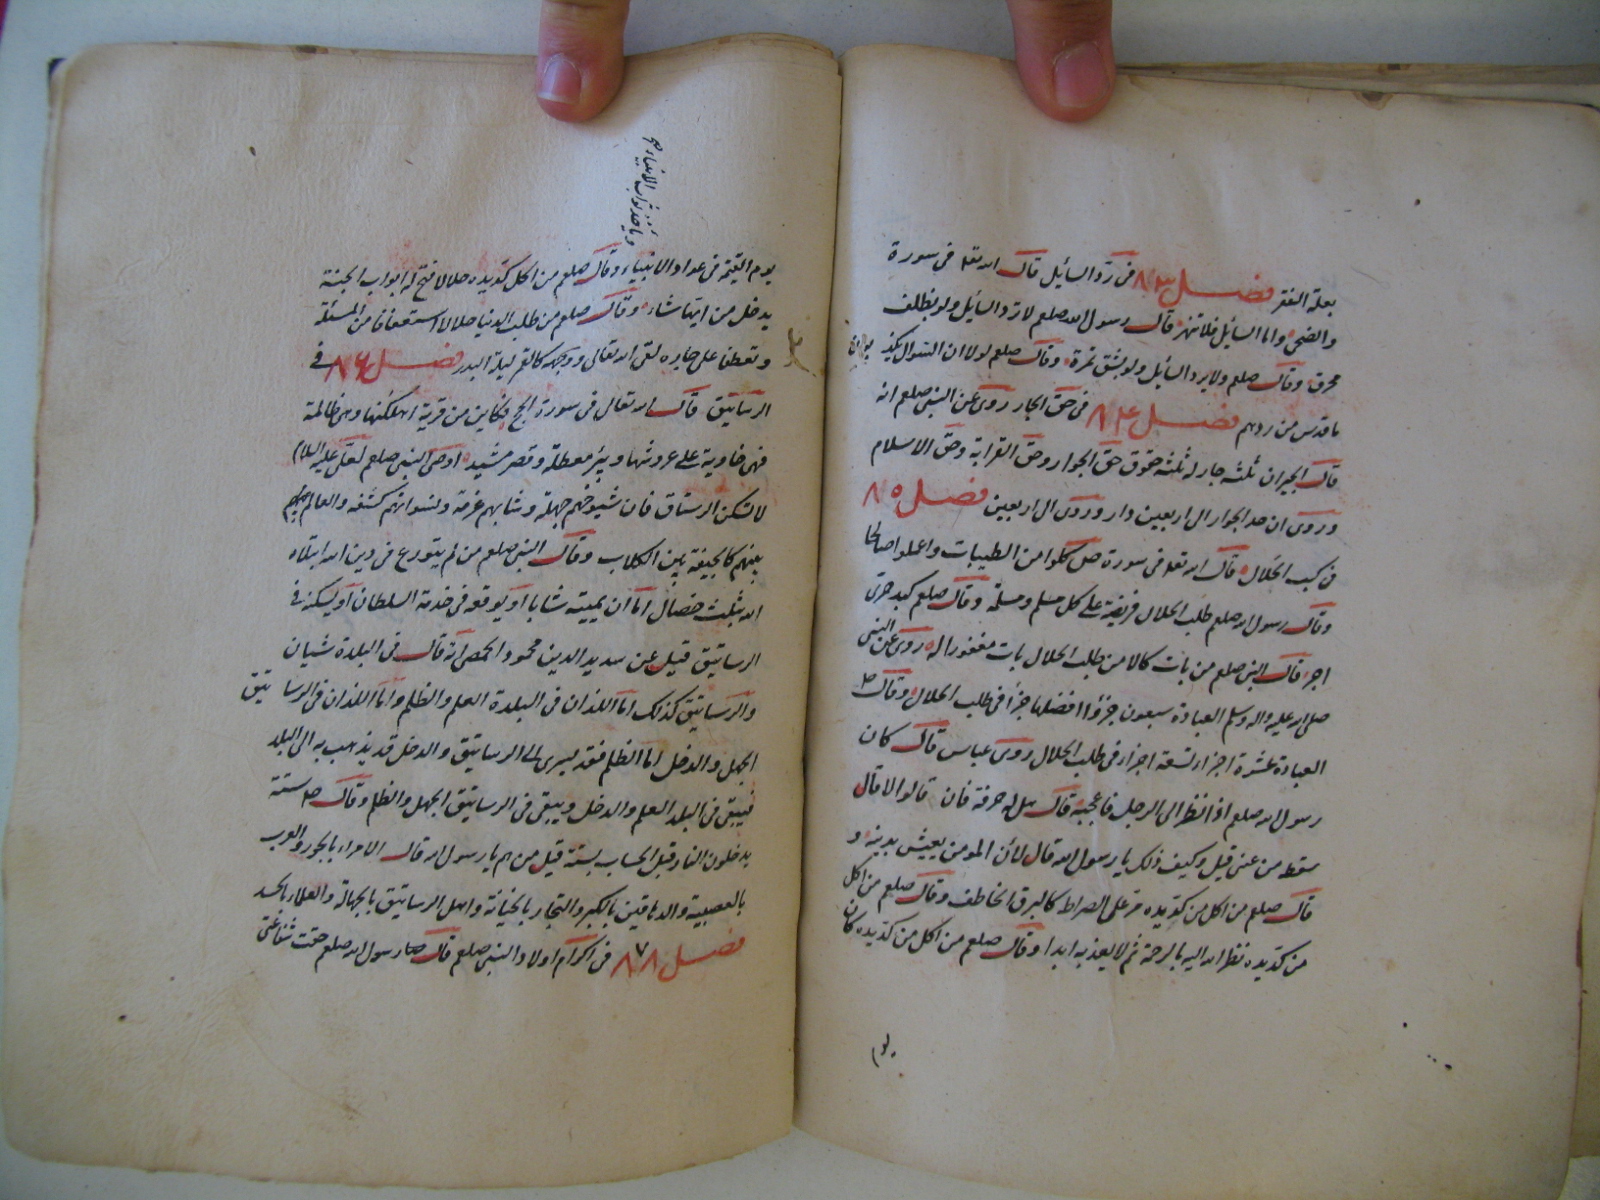 بعلة الفقر فصل ٨٣ فى ردّ السائل قال الله تعا فى سورة
والضحى واما السائل فلا تنهر قال رسول الله صلعم لا تردّ السائل ولو بظلف
محرق وقال صلعم ولا يرد السائل ولو بشق تمرة وقال صلعم لولا ان السوال يكذبون
ما قدس من ردهم فصل ٨٤ فى حق الجار روى عن النبى صلعم انه
قال الجيران ثلثة جار له ثلثة حقوق حق الجوار وحق القرابة وحق الاسلام
وروى ان حد الجوار الى اربعين دار وروى الى اربعين فصل ٨٥
فى كسب الحلال قال الله تعا فى سورة ص كلوا من الطيبات واعملوا صالحا
وقال رسول الله صلعم طلب الحلال فريضة على كل مسلم ومسلمة وقال صلعم كبد حرى
اجر قال النبى صلعم من بات كالا من طلب الحلال بات مغفورا له روى عن النبى
صلى الله عليه واله وسلم العبادة سبعون جزؤا افضلها جزأ فى طلب الحلال وقال ص
العبادة عشرة اجزاء تسعة اجزاء فى طلب الحلال روى عباس قال كان
رسول الله صلعم اذا نظر الى الرجل فاعجبه قال هل له حرفة فان قالوا لا قال
سقط من عينى قيل وكيف ذلك يا رسول الله قال لأن المومن يعيش بدينه و
قال صلعم من اكل من كدّ يده مر على الصراط كالبرق الخاطف وقال صلعم من اكل
من كدّ يده نظر الله اليه بالرحمة ثم لا يعذبه ابدا وقال صلعم من اكل من كدّ يده كان
يوم
وياخذ ثواب الانبياء صح
يوم القيمة فى عداد الانبياء وقال صلعم من اكل كدّ يده حلالا فتح له ابواب الجنة
يدخل من ايّها شاء وقال صلعم من طلب الدنيا حلالا استعفافا من المسئلة
وتعطفا على جاره لقى الله تعالى ووجهه كالقمر ليلة البدر فصل ٨٦ فى
الرساتيق قال الله تعالى فى سورة الحج فكاين من قرية اهلكنها وهى ظالمة
فهى خاوية على عروشها وبئر معطلة وقصر مشيد اوصى النبى صلعم لعلى عليه السلام
لا تسكن الرستاق فان شيوخهم جهلة وشابهم عرفة ونسوانهم كشفه والعالم
بينهم كالجيفة بين الكلاب وقال النبى صلعم من لم يتورع فى دين الله ابتلاه
الله بثلث خصال امّا ان يميته شابا او يوقعه فى خدمة السلطان او يسكنه فى
الرساتيق قيل عن سديد الدين محمود الحمصى انه قال فى البلدة شيان
والرساتيق كذلك امّا اللذان فى البلدة العلم والظلم وامّا اللذان فى الرساتيق
الجهل والدخل امّا الظلم فقد يسرى الى الرساتيق والدخل قد يذهب به الى البلد
فيبقى فى البلد العلم والدخل ويبقى فى الرساتيق الجهل والظلم وقال ص ستة
يدخلون النار قبل الحساب بستة قيل من هم يا رسول الله قال الامراء بالجور والعرب
بالعصبية والدهاقين بالكبر والتجار بالخيانة واهل الرساتيق بالجهالة والعلماء بالحسد
فصل ٨٧ فى اكرام اولاد النبى صلعم قال رسول الله صلعم حقت شفاعتى